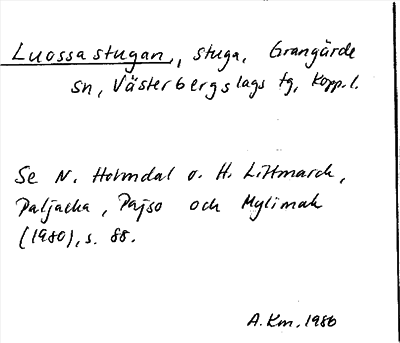 Luossastugan, stuga, Grangärde
sn, Västerbergslags tg, Kopp. l.
Se N. Holmdal o. H. Littmarck,
Paljacka, Pajso och Mylimak
(1980), s. 88.
A. Km. 1986